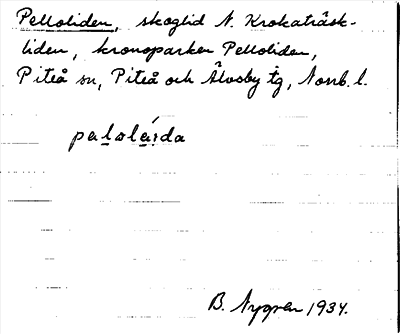 Pelloliden, skoglid N. Krokaträsk-
liden, kronoparken Pelloliden,
Piteå sn, Piteå och Älvsby tg, Norrb. l.
pelolaída
B. Nygren 1934.